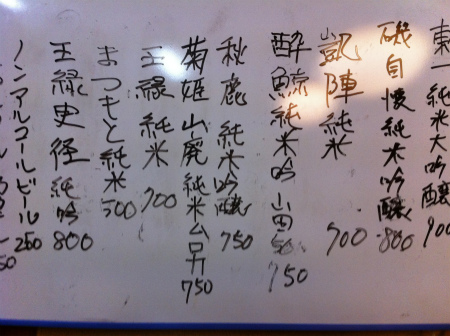 東一純米大吟醸 900
磯自慢純米吟醸 800
凱陣純米 900
酔鯨純米吟 山田50 750
秋鹿 純米吟醸 750
菊姫 山廃 純米 750
玉緑 純米 700
まつもと純米 500
玉緑史径純吟 800
ノンアルコールビール 250